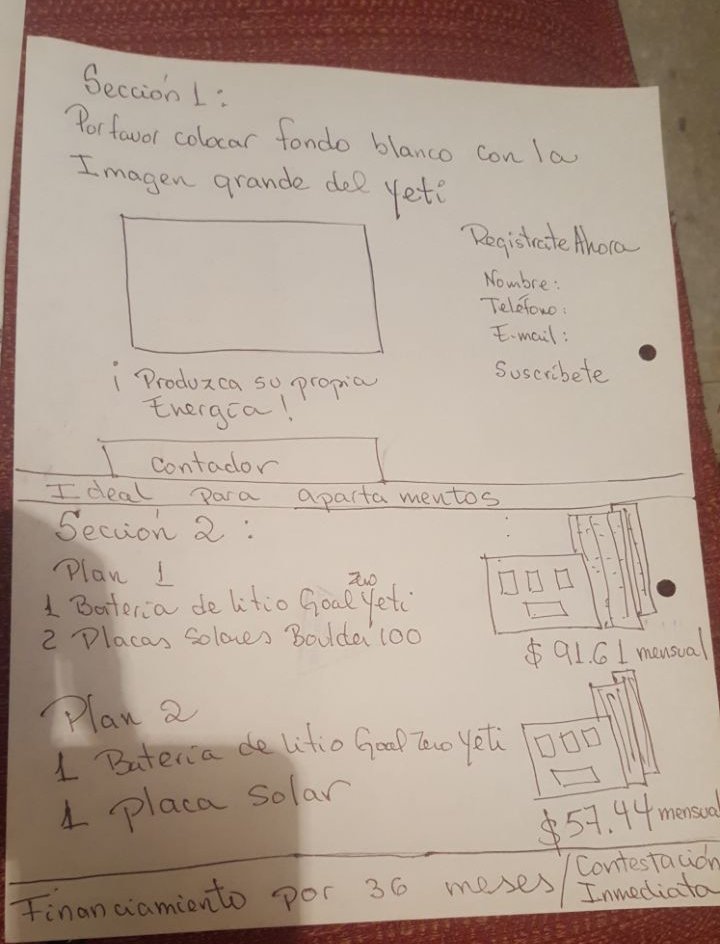 Sección 1:
Por favor colocar fondo blanco con la
Imagen grande del yeti
Registrate Ahora
Nombre:
Teléfono:
E-mail:
Suscríbete
¡Produzca su propia
Energía!
Contador
Ideal para apartamentos
Sección 2:
Plan 1
1 Batería de litio Goal Zero Yeti
2 Placas Solares Boulder 100
$91.61 mensual
Plan 2
1 Batería de litio Goal Zero Yeti
1 Placa Solar
$57.44 mensual
Financiamiento por 36 meses/Contestación
Inmediata